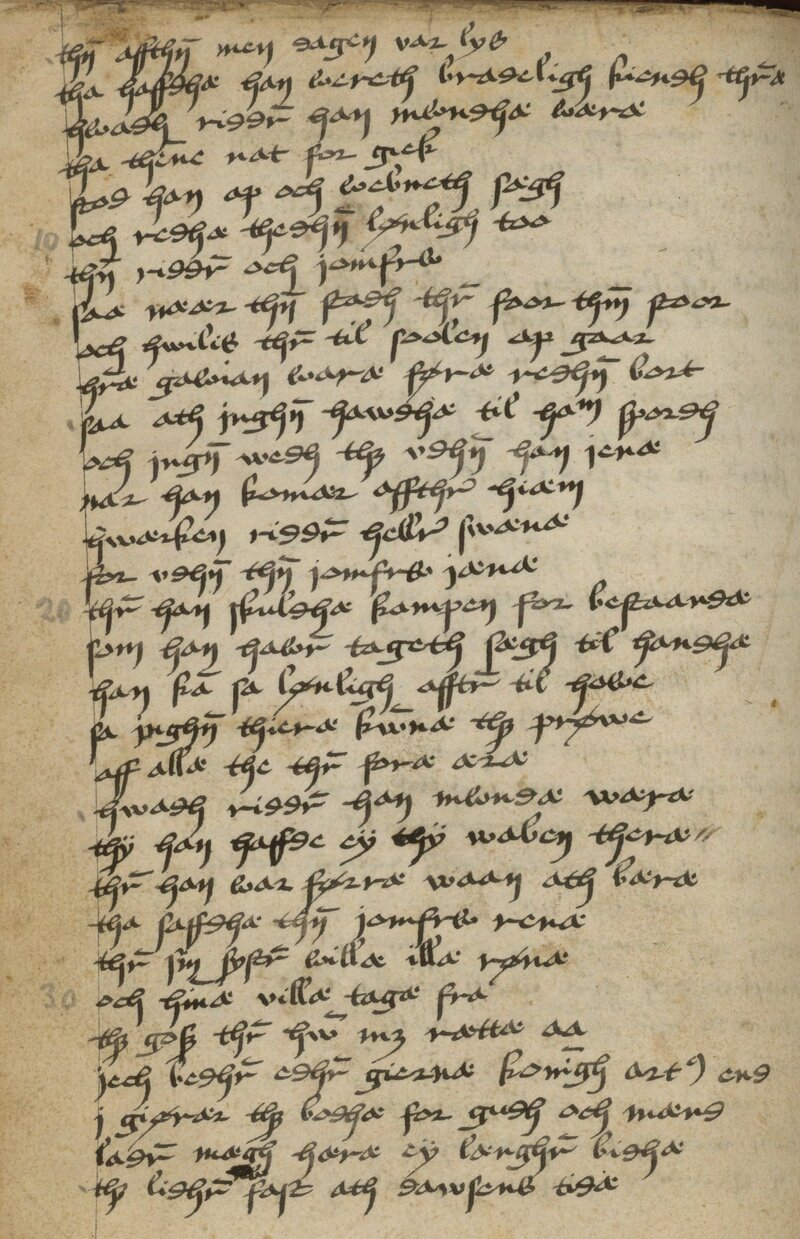 thn̄ affthn̄ men dagen var lys
tha haffdhæ han wereth bradeligh kiendh thr̄æ
hwadh riddr̄ han mwndhæ wæræ
tha thēne nat for giek
stod han ap och webneth sægh
10 och redhæ thedhn̄ lønligh too
thn̄ riddr̄ och jomfrw
saa nææær thn̄ stadh thr̄ foor thm̄ stoor
och hwilis thr̄ til soolen ap gaar
hr̄æ gawian waræ føræ redhn̄ bort
saa ath jnghn̄ hawdhæ til ham spordh
och jngn̄ wedh thʒ vdhn̄ han jenæ
nar han komær affthr̄ hiæm
hwærken riddr̄ hellr̄ swænæ
for vdhn̄ thn̄ jomfrw jænæ
20 thr̄ han skuldhæ kampen for bestaandæ
som han hawr̄ tageth sægh til handhæ
han kā sa lønligh afftr̄ til howe
sa jnghn̄ thieræ kwn̄æ thʒ prøwe
aff allæ the thr̄ foræ æræ
hwadh riddr̄ han mwndæ wæræ
thÿ han haffde eÿ thÿ waben theræ〃
thr̄ han war førræ waan ath bæræ
tha saffdhæ thn̄ jomfrw renæ
thr̄ sin systr̄ willæ illæ rønæ
30 och hīnæ villæ tagæ fra
thʒ goʒ thr̄ hw̄ mʒ rættæ aa
jech bedhr̄ edhr̄ giernæ konīgh art⁹ end
j giørær thʒ bodhæ for gudh och mænd
ladr̄ mægh hæræ eÿ længhr̄ bidhæ
thʒ lidhr̄ fast ath dawsens tidæ